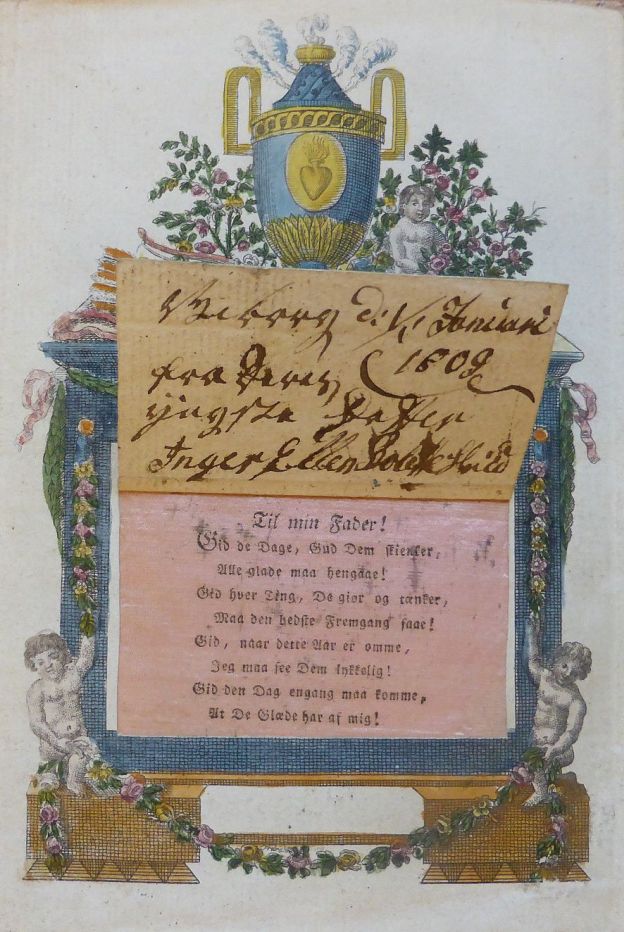 Wiborg d: 1/1 Januari
1809
fra Deres
yngste Datter
Inger Ellen
Til min Fader!
Gid de Dage, Gud Dem skienker,
Alle glade maa hengaae!
Gid hver Ting, De giør og tænker,
Maa den bedste Fremgang faae!
Gid, naar dette Aar er omme,
Jeg maa see Dem lykkelig!
Gid den Dag engang maa komme,
At De Glæde har af mig!